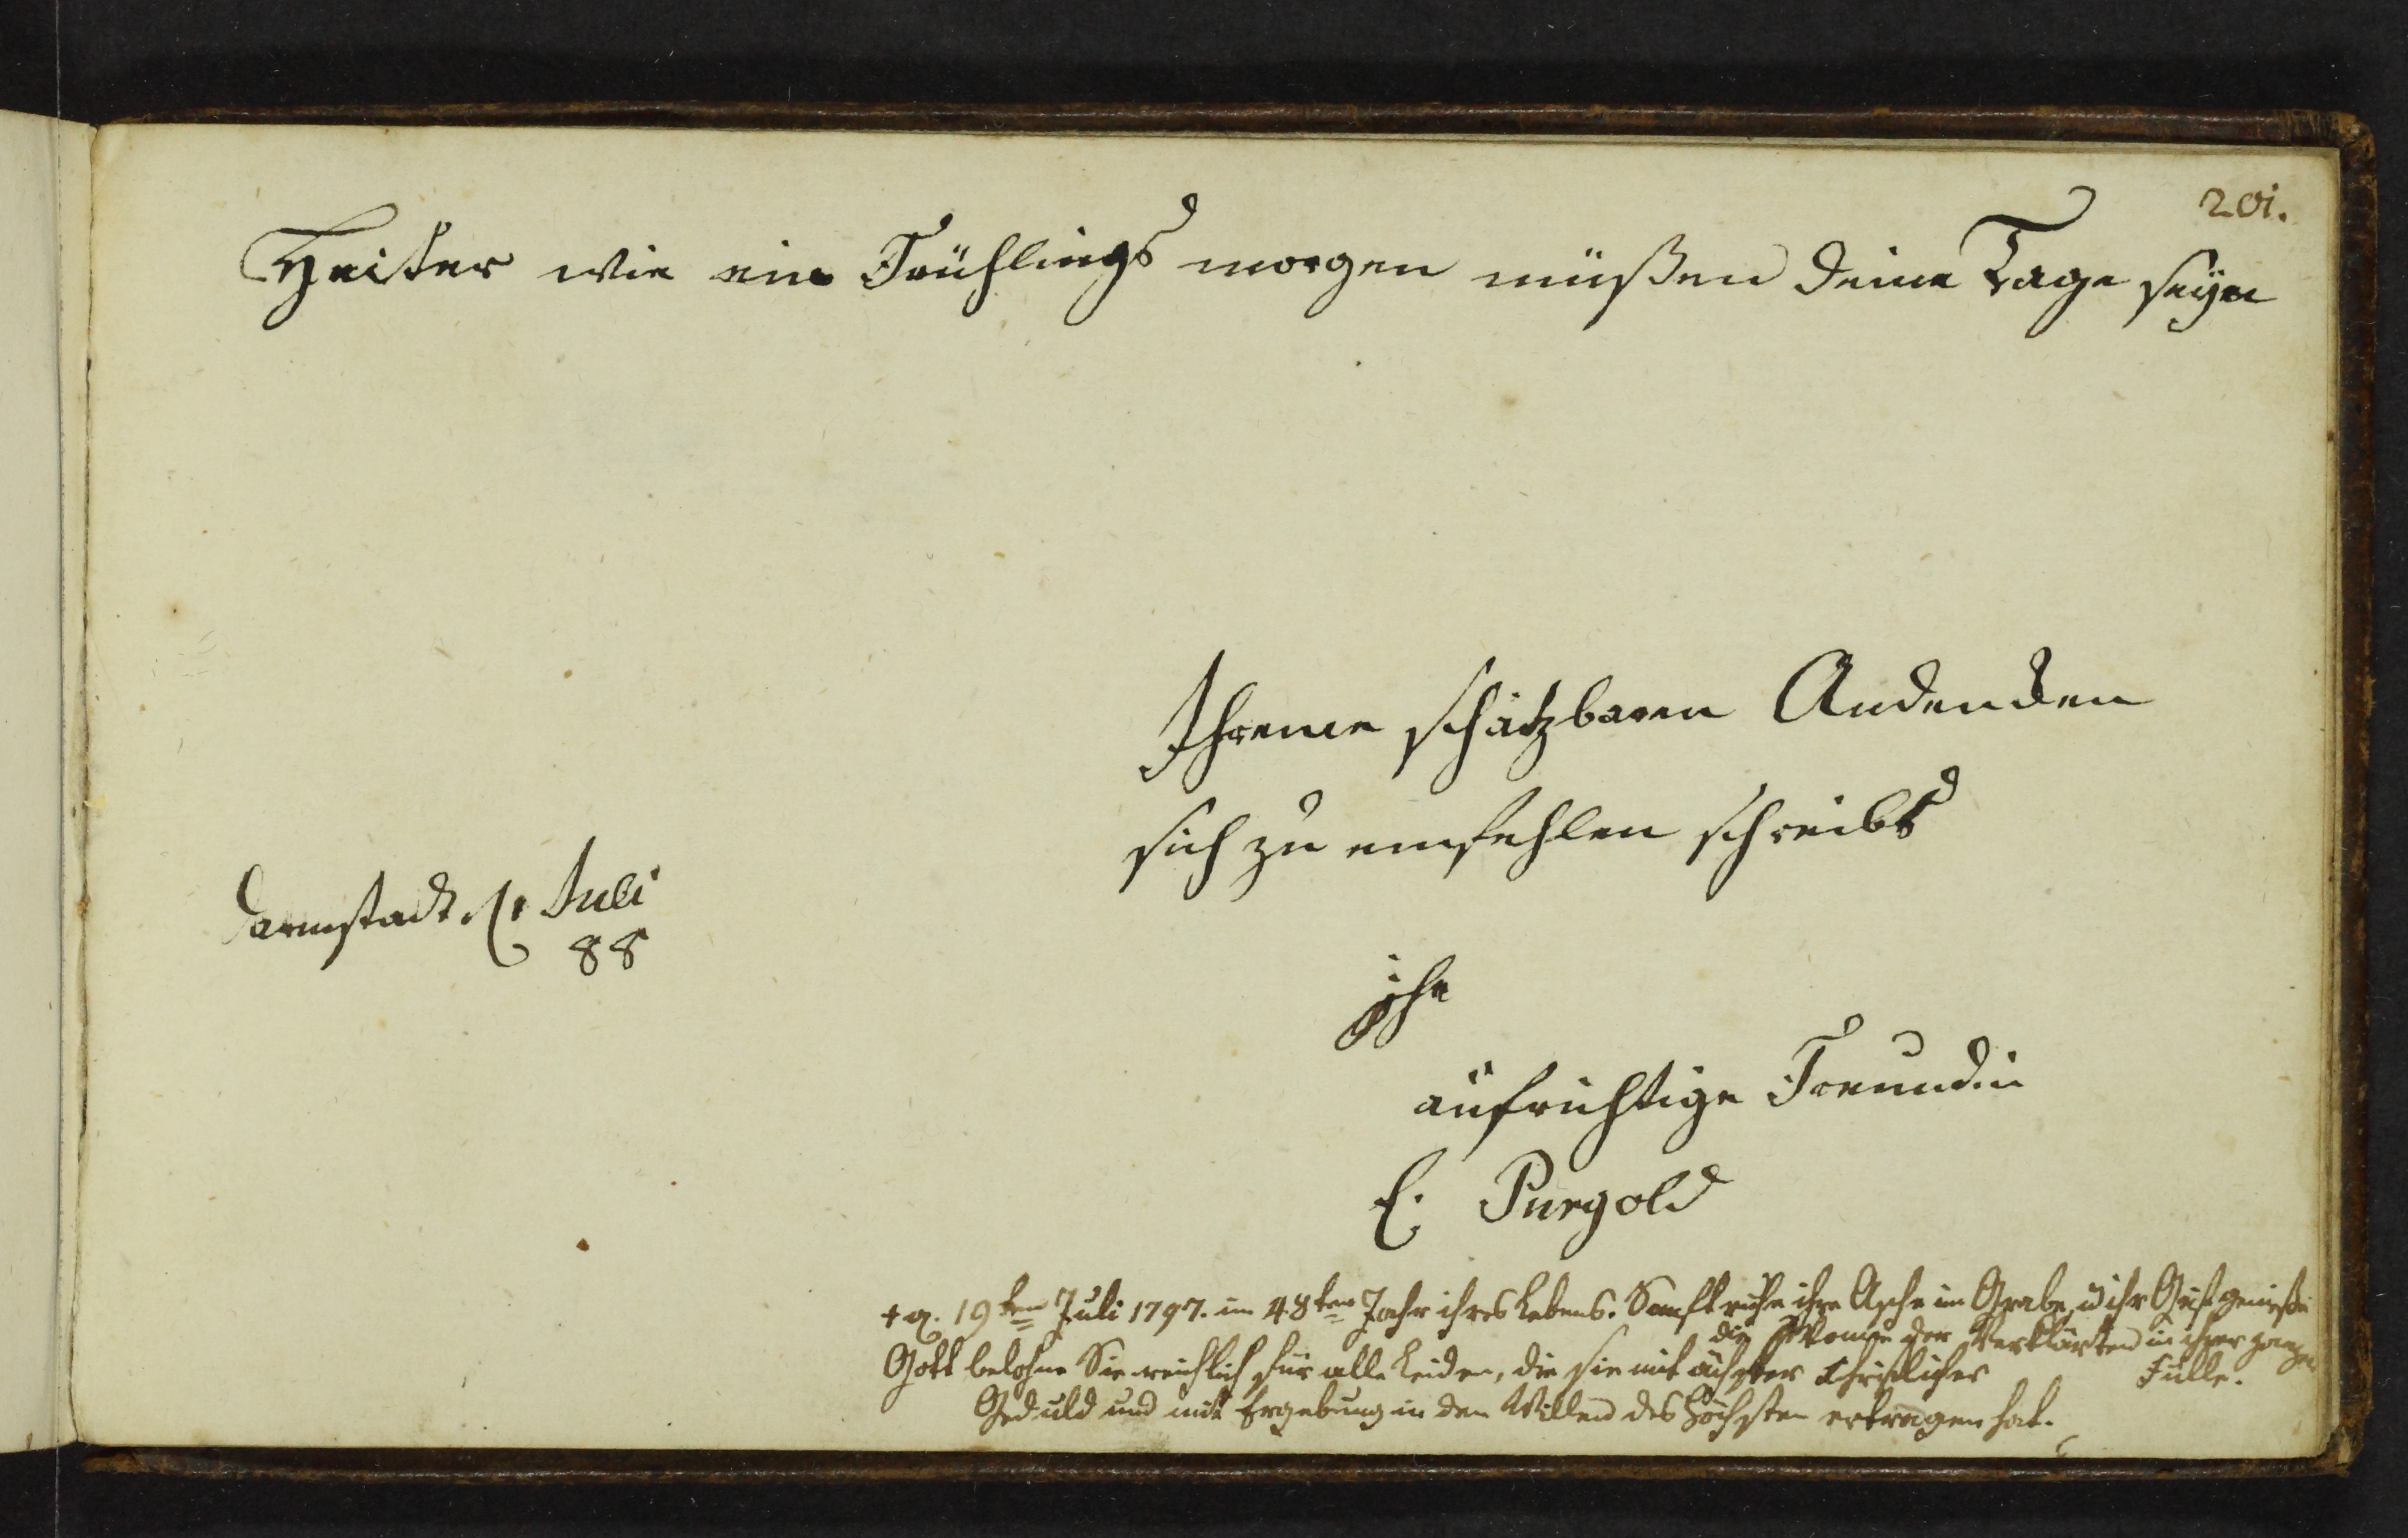 201.
Heiter wie ein Frühlings morgen müßen deine Tage seÿn
Ihrem schäzbaren Andencken
sich zu empfehlen schreibt
Darmstadt Juli
88
ihr
aufrichtige Freundin
E. Purgold
+ d. 19ten Juli 1797. im 48ten Jahr ihres Lebens. Sanft ruhe ihre Asche im Grabe, u ihr Geist genieße
die Wonne der Verklärten in ihrer ganzen
Fülle.
Gott belohne Sie reichlich für alle Leiden, die sie mit ächter Christlicher
Geduld und mit Ergebung in den Willen des Höchsten ertragen hat.